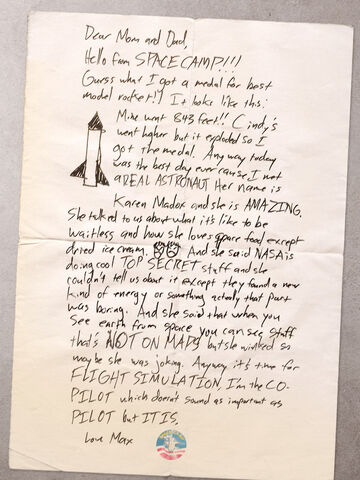 Dear Mom and Dad,
Hello from SPACE CAMP!!!
Guess what I got a medal for best
model rocket!! It looks like this:
Mine went 843 feet!! Cindy's
went higher but it exploded so I
got the medal. Anyway today
was the best day ever cause I met
a REAL ASTRONAUT Her name is
Karen Madox and she is AMAZING.
She talked to us about what it's like to be
waitless and how she loves space food except
dried ice cream. And she said NASA is
doing cool TOP SECRET stuff and she
couldn't tell us about it except they found a new
kind of energy or something actualy that part
was boring. And she said that when you
see earth from space you can see stuff
that's NOT ON MAPS but she winked so
maybe she was joking. Anyway it's time for
FLIGHT SIMULATION, I'm the CO-
PILOT which doesn't sound as important as
PILOT but IT IS.
Love Max